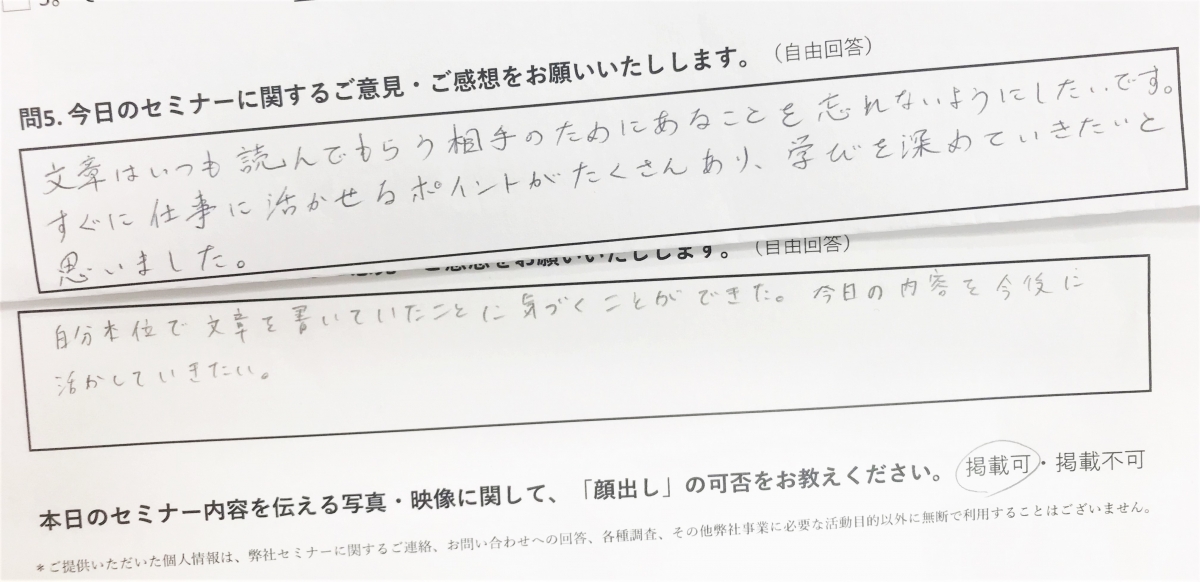 問5. 今日のセミナーに関するご意見・ご感想をお願いいたしします。（自由回答）
文章はいつも読んでもらう相手のためにあることを忘れないようにしたいです。
すぐに仕事に活かせるポイントがたくさんあり、学びを深めていきたいと
思いました。
ご感想をお願いいたしします。（自由回答）
自分本位で文章を書いていたことに気づくことができた。今日の内容を今後に
活かしていきたい。
本日のセミナー内容を伝える写真・映像に関して、「顔出し」の可否をお教えください。 掲載可・掲載不可
*ご提供いただいた個人情報は、弊社セミナーに関するご連絡、お問い合わせへの回答、各種調査、その他弊社事業に必要な活動目的以外に無断で利用することはございません。